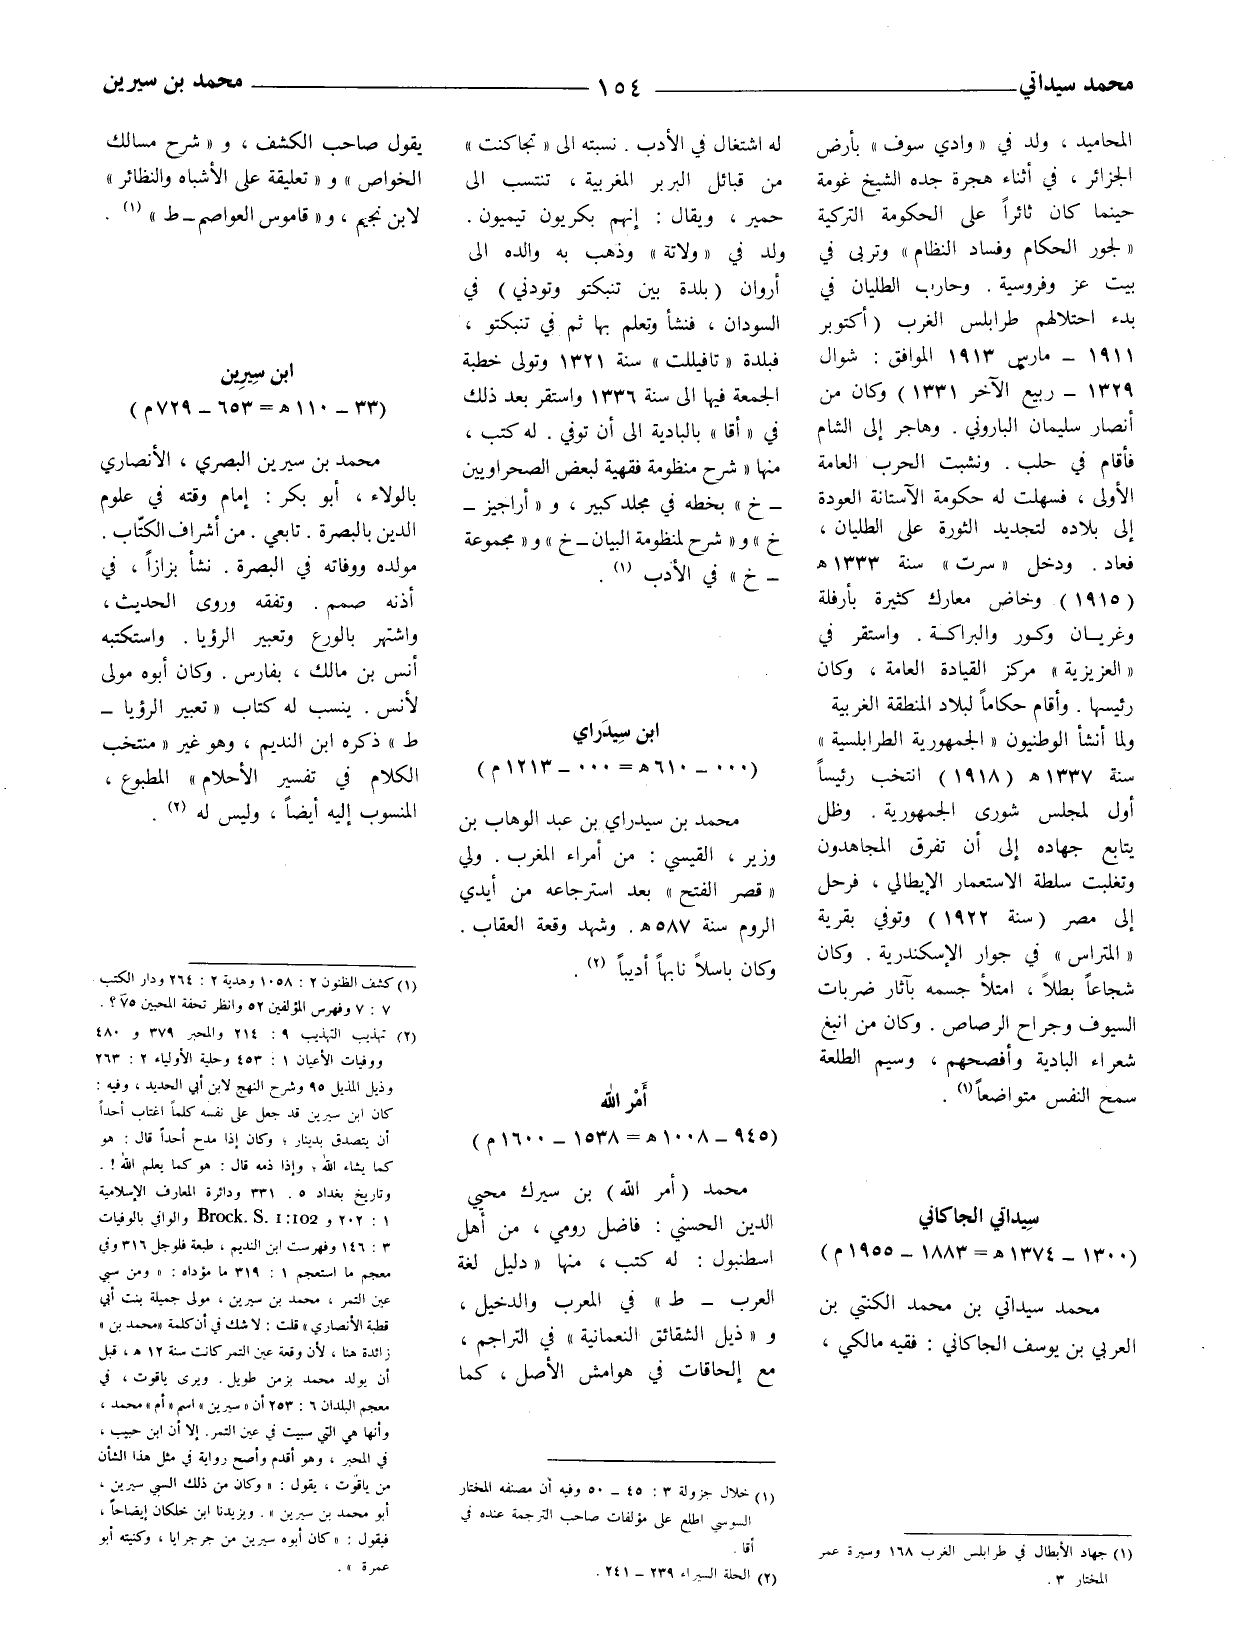 محمد سيداتي ١٥٤ محمد بن سيرين
المحاميد ، ولد في « وادي سوف » بأرض
الجزائر ، في أثناء هجرة جده الشيخ غومة
حينما كان ثائراً على الحكومة التركية
« لجور الحكام وفساد النظام » وتربى في
بيت عز وفروسية . وحارب الطليان في
بدء احتلالهم طرابلس الغرب ( أكتوبر
١٩١١ ــ مارس ١٩١٣ الموافق : شوال
١٣٢٩ ــ ربيع الآخر ١٣٣١ ) وكان من
أنصار سليمان الباروني . وهاجر إلى الشام
فأقام في حلب . ونشبت الحرب العامة
الأولى ، فسهلت له حكومة الآستانة العودة
إلى بلاده لتجديد الثورة على الطليان ،
فعاد . ودخل « سرت » سنة ١٣٣٣ ه
( ١٩١٥ ) وخاض معارك كثيرة بأرفلة
وغريــان وككور والبراكــة . واستقر في
« العزيزية » مركز القيادة العامة ، وكان
رئيسها . وأقام حكاماً لبلاد المنطقة الغربية
ولما أنشأ الوطنيون « الجمهورية الطرابلسية »
سنة ١٣٣٧ ه ( ١٩١٨ ) انتخب رئيساً
أول لمجلس شورى الجمهورية . وظل
يتابع جهاده إلى أن تفرق المجاهدون
وتغلبت سلطة الاستعمار الإيطالي ، فرحل
إلى مصر ( سنة ١٩٢٢ ) وتوفي بقرية
« المتراس » في جوار الإسكندرية . وكان
شجاعاً بطلاً ، امتلأ جسمه بآثار ضربات
السيوف وجراح الرصاص . وكان من انبغ
شعراء البادية وأفصحهم ، وسيم الطلعة
سمح النفس متواضعاً (١) .
سيداتي الجاكاني
( ١٣٠٠ ــ ١٣٧٤ ه = ١٨٨٣ ــ ١٩٥٥ م )
محمد سيداتي بن محمد الكنتي بن
العربي بن يوسف الجاكاني : فقيه مالكي ،
(١) جهاد الأبطال في طرابلس الغرب ١٦٨ وسيرة عمر
المختار ٣ .
له اشتغال في الأدب . نسبته الى « تجاكنت »
من قبائل البربر المغربية ، تنتسب الى
حمير ، ويقال : إنهم بكريون تيميون .
ولد في « ولاتة » وذهب به والده الى
أروان ( بلدة بين تنبكتو وتودني ) في
السودان ، فنشأ وتعلم بها ثم في تنبكتو ،
فبلدة « تافيللت » سنة ١٣٢١ وتولى خطبة
الجمعة فيها الى سنة ١٣٣٦ واستقر بعد ذلك
في « أقا » بالبادية الى أن توفي . له كتب ،
منها « شرح منظومة فقهية لبعض الصحراويين
ــ خ » بخطه في مجلد كبير ، و « أراجيز ــ
خ » و « شرح لمنظومة البيان ــ خ » و « مجموعة
ــ خ » في الأدب (١) .
ابن سِيدَراي
( ٠٠٠ ــ ٦١٠ ه = ٠٠٠ ــ ١٢١٣ م )
محمد بن سيدراي بن عبد الوهاب بن
وزير ، القيسي : من أمراء المغرب . ولي
« قصر الفتح » بعد استرجاعه من أيدي
الروم سنة ٥٨٧ ه . وشهد وقعة العقاب .
وكان باسلاً نابهاً أديباً (٢) .
أَمْر الله
( ٩٤٥ ــ ١٠٠٨ ه = ١٥٣٨ ــ ١٦٠٠ م )
محمد ( أمر الله ) بن سيرك محيي
الدين الحسني : فاضل رومي ، من أهل
اسطنبول : له كتب ، منها « دليل لغة
العرب ــ ط » في المعرب والدخيل ،
و « ذيل الشقائق النعمانية » في التراجم ،
مع إلحاقات في هوامش الأصل ، كما
(١) خلال جزولة ٣ : ٤٥ ــ ٥٠ وفيه أن مصنفه المختار
السوسي اطلع على مؤلفات صاحب الترجمة عنده في
أقا .
(٢) الحلة السيراء ٢٣٩ ــ ٢٤١ .
يقول صاحب الكشف ، و « شرح مسالك
الخواص » و « تعليقة على الأشباه والنظائر »
لابن نجيم ، و « قاموس العواصم ــ ط » (١) .
ابن سِيرِين
( ٣٣ ــ ١١٠ ه = ٦٥٣ ــ ٧٢٩ م )
محمد بن سيرين البصري ، الأنصاري
بالولاء ، أبو بكر : إمام وقته في علوم
الدين بالبصرة . تابعي . من أشراف الكتّاب .
مولده ووفاته في البصرة . نشأ بزازاً ، في
أذنه صمم . وتفقه وروى الحديث ،
واشتهر بالورع وتعبير الرؤيا . واستكتبه
أنس بن مالك ، بفارس . وكان أبوه مولى
لأنس . ينسب له كتاب « تعبير الرؤيا ــ
ط » ذكره ابن النديم ، وهو غير « منتخب
الكلام في تفسير الأحلام » المطبوع ،
المنسوب إليه أيضاً ، وليس له (٢) .
(١) كشف الظنون ٢ : ١٠٥٨ وهدية ٢ : ٢٦٤ ودار الكتب
٧ : ٧ وفهرس المؤلفين ٥٢ وانظر تحفة المحبين ٧٥ ؟ .
(٢) تهذيب التهذيب ٩ : ٢١٤ والمحبر ٣٧٩ و ٤٨٠
ووفيات الأعيان ١ : ٤٥٣ وحلية الأولياء ٢ : ٢٦٣
وذيل المذيل ٩٥ وشرح النهج لابن أبي الحديد ، وفيه :
كان ابن سيرين قد جعل على نفسه كلما اغتاب أحداً
أن يتصدق بدينار ؛ وكان إذا مدح أحداً قال : هو
كما يشاء الله ؛ وإذا ذمه قال : هو كما يعلم الله ! .
وتاريخ بغداد ٥ . ٣٣١ ودائرة المعارف الإسلامية
١ : ٢٠٢ و Brock. S. 1:102 والوافي بالوفيات
٣ : ١٤٦ وفهرست ابن النديم ، طبعة فلوجل ٣١٦ وفي
معجم ما استعجم ١ : ٣١٩ ما مؤداه : « ومن سبي
عين التمر ، محمد بن سيرين ، مولى جميلة بنت أبي
قطبة الأنصاري » قلت : لا شك في أن كلمة « محمد بن »
زائدة هنا ، لأن وقعة عين التمر كانت سنة ١٢ ه ، قبل
أن يولد محمد بزمن طويل . ويرى ياقوت ، في
معجم البلدان ٦ : ٢٥٣ أن « سيرين » اسم « أم » محمد ،
وأنها هي التي سبيت في عين التمر . إلا أن ابن حبيب ،
في المحبر ، وهو أقدم وأصح رواية في مثل هذا الشأن
من ياقوت ، يقول : « وكان من ذلك السبي سيرين ،
أبو محمد بن سيرين » . ويزيدنا ابن خلكان إيضاحاً ،
فيقول : « كان أبوه سيرين من جرجرايا ، وكنيته أبو
عمرة » .